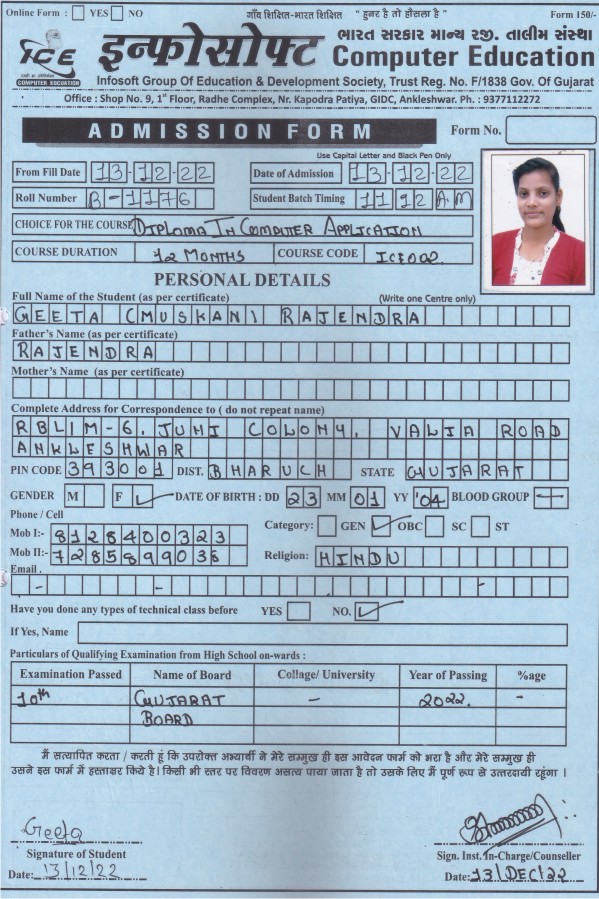 Online Form : YES NO गाँव शिक्षित-भारत शिक्षित " हुनर है तो हौसला है " Form 150/-
ICE इन्फोसोफ्ट ભારત સરકાર માન્ય રજી. તાલીમ સંસ્થા
COMPUTER EDUCATION Computer Education
Infosoft Group Of Education & Development Society, Trust Reg. No. F/1838 Gov. Of Gujarat
Office : Shop No. 9, 1st Floor, Radhe Complex, Nr. Kapodra Patiya, GIDC, Ankleshwar. Ph. : 9377112272
ADMISSION FORM Form No.
Use Capital Letter and Black Pen Only
From Fill Date 13-12-22 Date of Admission 13-12-22
Roll Number B-1176 Student Batch Timing 1112 A.M
CHOICE FOR THE COURSE DIPLOMA IN COMPUTER APPLICATION
COURSE DURATION 12 MONTHS COURSE CODE ICE002
PERSONAL DETAILS
Full Name of the Student (as per certificate) (Write one Centre only)
GEETA (MUSKAN) RAJENDRA
Father's Name (as per certificate)
RAJENDRA
Mother's Name (as per certificate)
Complete Address for Correspondence to ( do not repeat name)
RBLIM-6, JUHI COLONY, VALIA ROAD
ANKLESHWAR
PIN CODE 393001 DIST. BHARUCH STATE GUJARAT
GENDER M F DATE OF BIRTH : DD 23 MM 01 YY '04 BLOOD GROUP
Phone / Cell
Mob I:- 8128400323 Category: GEN OBC SC ST
Mob II:- 7285899036 Religion: HINDU
Email .
Have you done any types of technical class before YES NO.
If Yes, Name
Particulars of Qualifying Examination from High School on-wards :
Examination Passed Name of Board Collage/ University Year of Passing %age
10th GUJARAT - 2022. -
BOARD
में सत्यापित करता / करती हूं कि उपरोक्त अभ्यार्थी ने मेरे सम्मुख ही इस आवेदन फार्म को भरा है और मेरे सम्मुख ही
उसने इस फार्म में हस्ताक्षर किये है। किसी भी स्तर पर विवरण असत्य पाया जाता है तो उसके लिए मैं पूर्ण रूप से उत्तरदायी रहूंगा ।
Geeta
Signature of Student Sign. Inst. In-Charge/Counseller
Date: 13/12/22 Date: 13/DEC/22